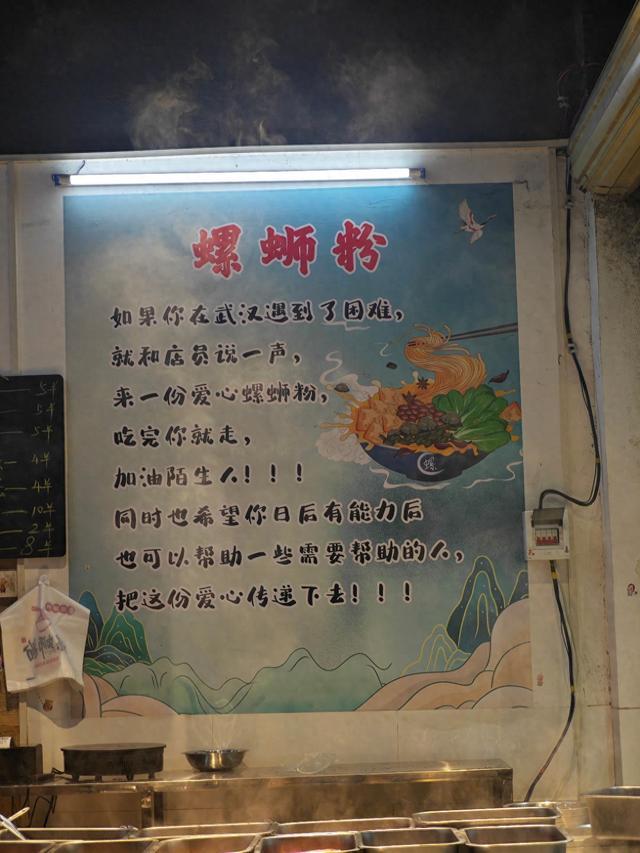 螺蛳粉
如果你在武汉遇到了困难，
就和店员说一声，
来一份爱心螺蛳粉，
吃完你就走，
加油陌生人！！！
同时也希望你日后有能力后
也可以帮助一些需要帮助的人，
把这份爱心传递下去！！！
螺
5半
5半
5半
4半
4半
10半
2半
8半